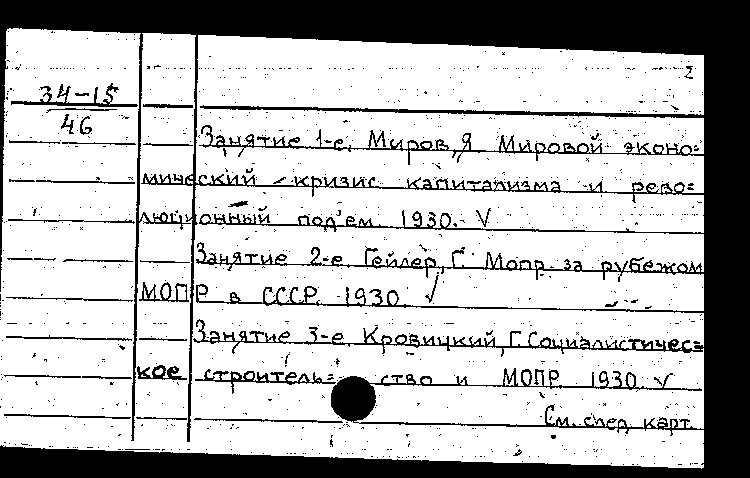 2
34-15
46
Занятие 1-е. Миров, Я. Мировой эконо=
мический кризис капитализма и рево=
люционный под'ем. 1930. V
Занятие 2-е. Гейлер, Г. Мопр за рубежом
МОПР в СССР. 1930. V
Занятие 3-е. Кровицкий, Г. Социалистичес=
кое строитель= ство и МОПР. 1930. V
См. след. карт.